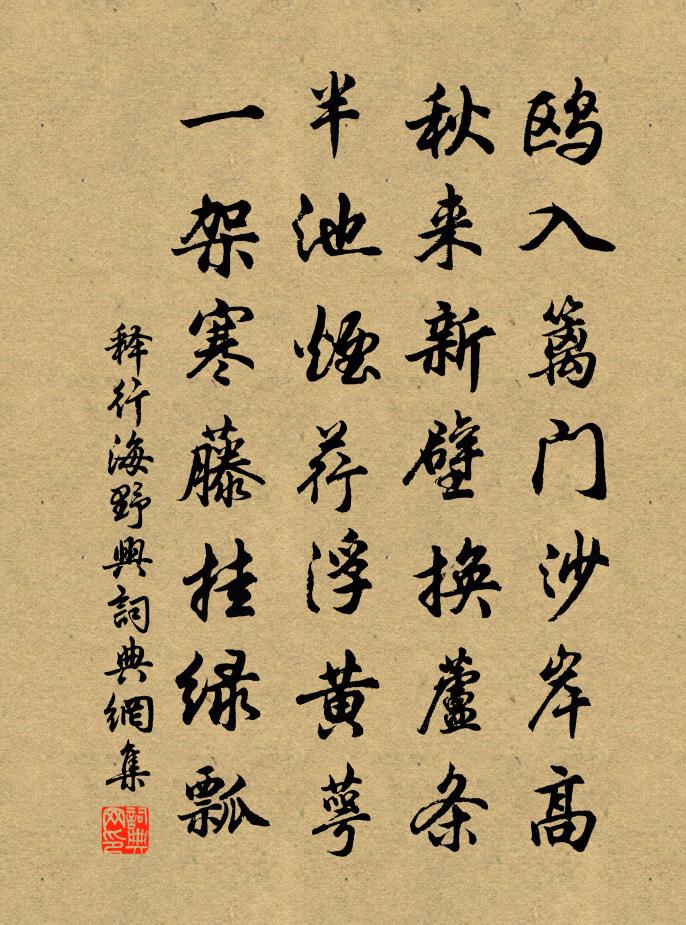 鸥入篱门沙岸高
秋来新壁换芦条
半池烟荇浮黄萼
一架寒藤挂绿瓢
释行海野兴词典网集
詞典网印